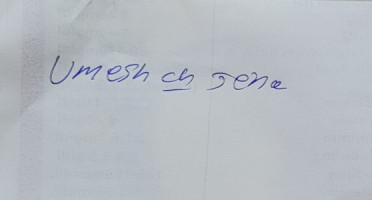 Umesh ch Jena